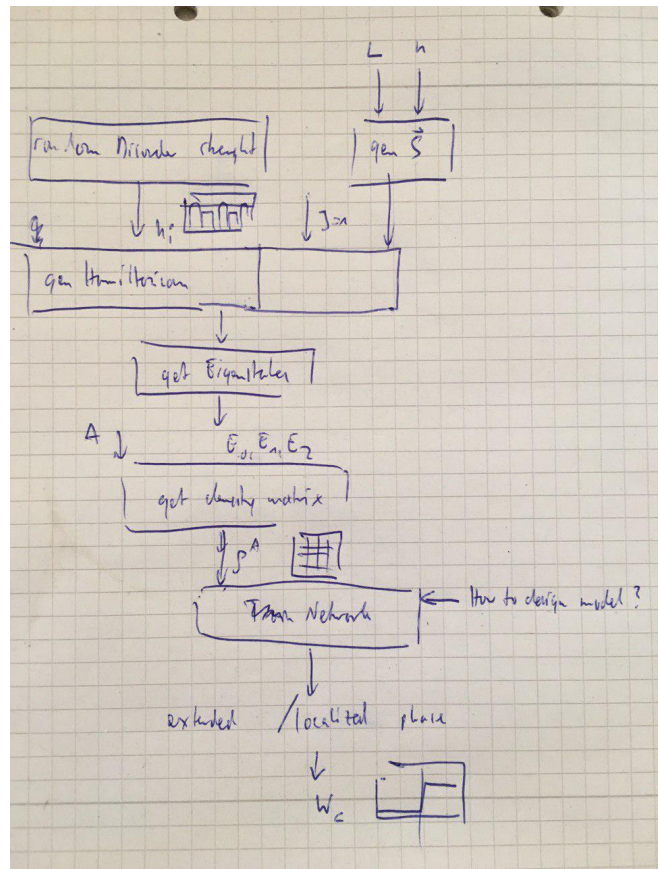 L n
random Disorder strenght
gen S⃗
h_i
J=1
gen Hamiltonian
get Eigenstates
A
E_0, E_1, E_2
get density matrix
ρ^A
Train Network
How to design model?
extended / localized phase
W_c